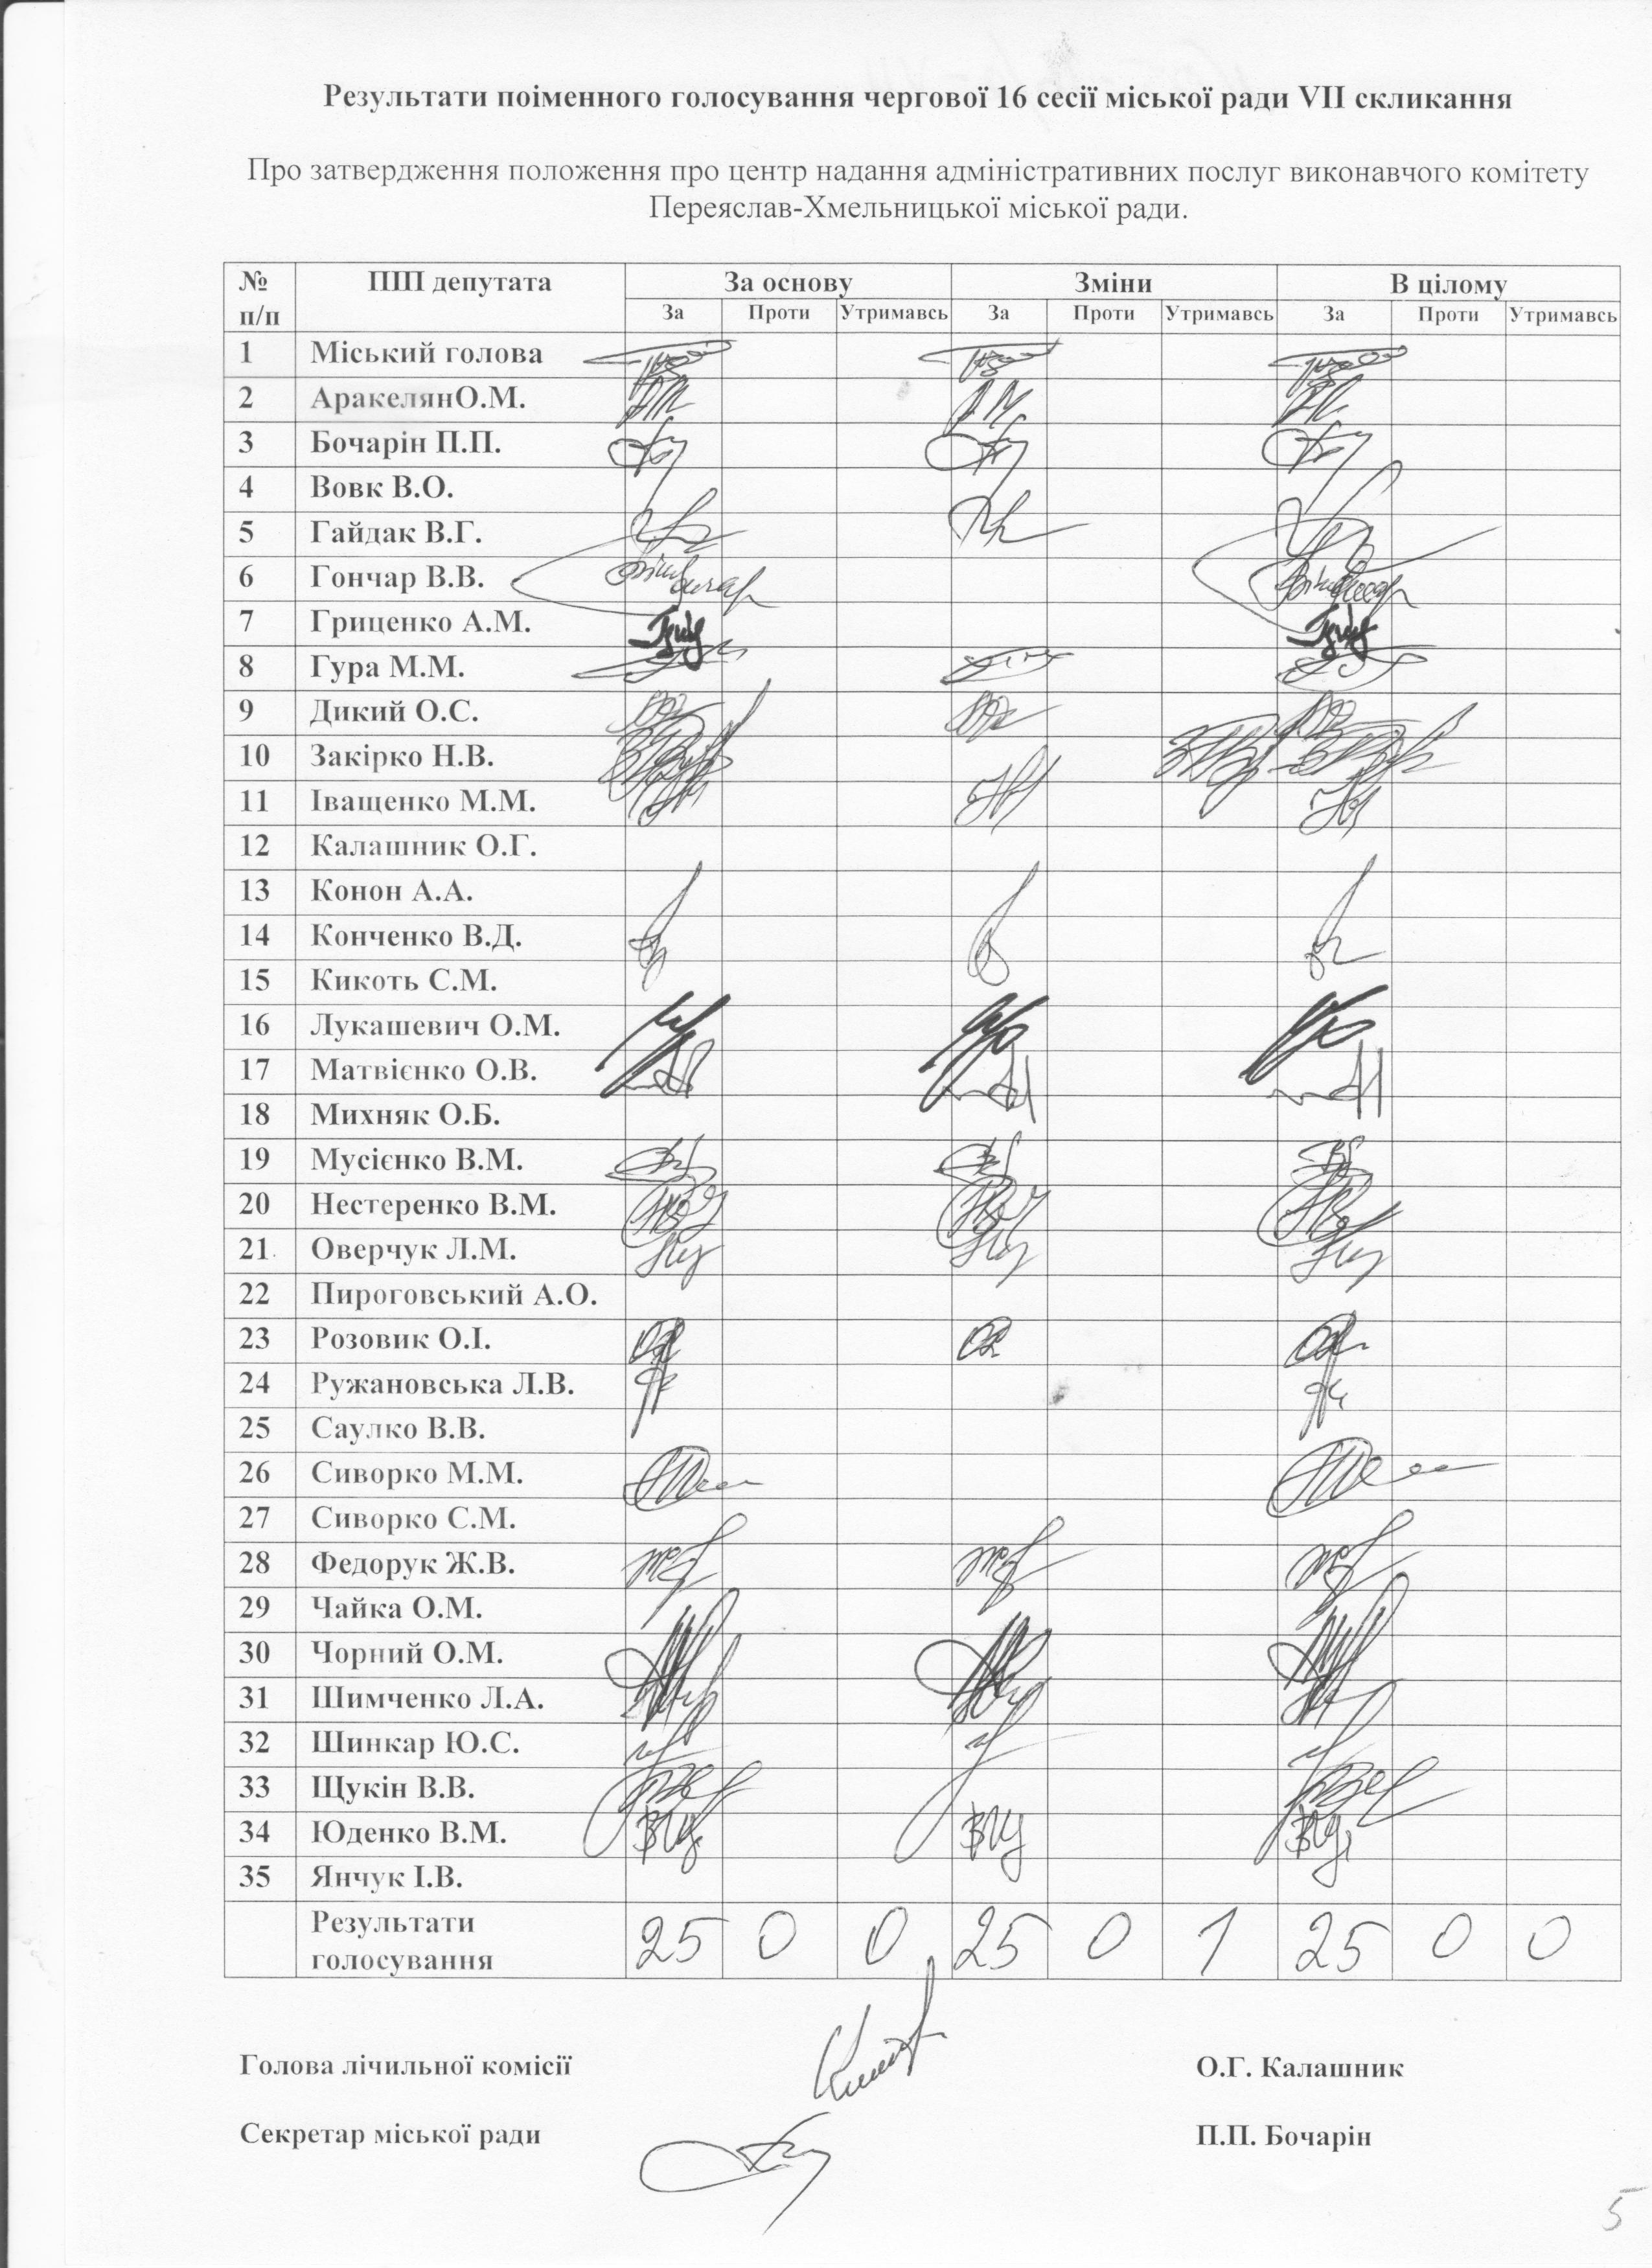 Результати поіменного голосування чергової 16 сесії міської ради VII скликання
Про затвердження положення про центр надання адміністративних послуг виконавчого комітету
Переяслав-Хмельницької міської ради.
№ п/п ПІП депутата За основу Зміни В цілому
За Проти Утримавсь За Проти Утримавсь За Проти Утримавсь
1 Міський голова
2 АракелянО.М.
3 Бочарін П.П.
4 Вовк В.О.
5 Гайдак В.Г.
6 Гончар В.В.
7 Гриценко А.М.
8 Гура М.М.
9 Дикий О.С.
10 Закірко Н.В.
11 Іващенко М.М.
12 Калашник О.Г.
13 Конон А.А.
14 Конченко В.Д.
15 Кикоть С.М.
16 Лукашевич О.М.
17 Матвієнко О.В.
18 Михняк О.Б.
19 Мусієнко В.М.
20 Нестеренко В.М.
21 Оверчук Л.М.
22 Пироговський А.О.
23 Розовик О.І.
24 Ружановська Л.В.
25 Саулко В.В.
26 Сиворко М.М.
27 Сиворко С.М.
28 Федорук Ж.В.
29 Чайка О.М.
30 Чорний О.М.
31 Шимченко Л.А.
32 Шинкар Ю.С.
33 Щукін В.В.
34 Юденко В.М.
35 Янчук І.В.
Результати голосування 25 0 0 25 0 1 25 0 0
Голова лічильної комісії О.Г. Калашник
Секретар міської ради П.П. Бочарін
5